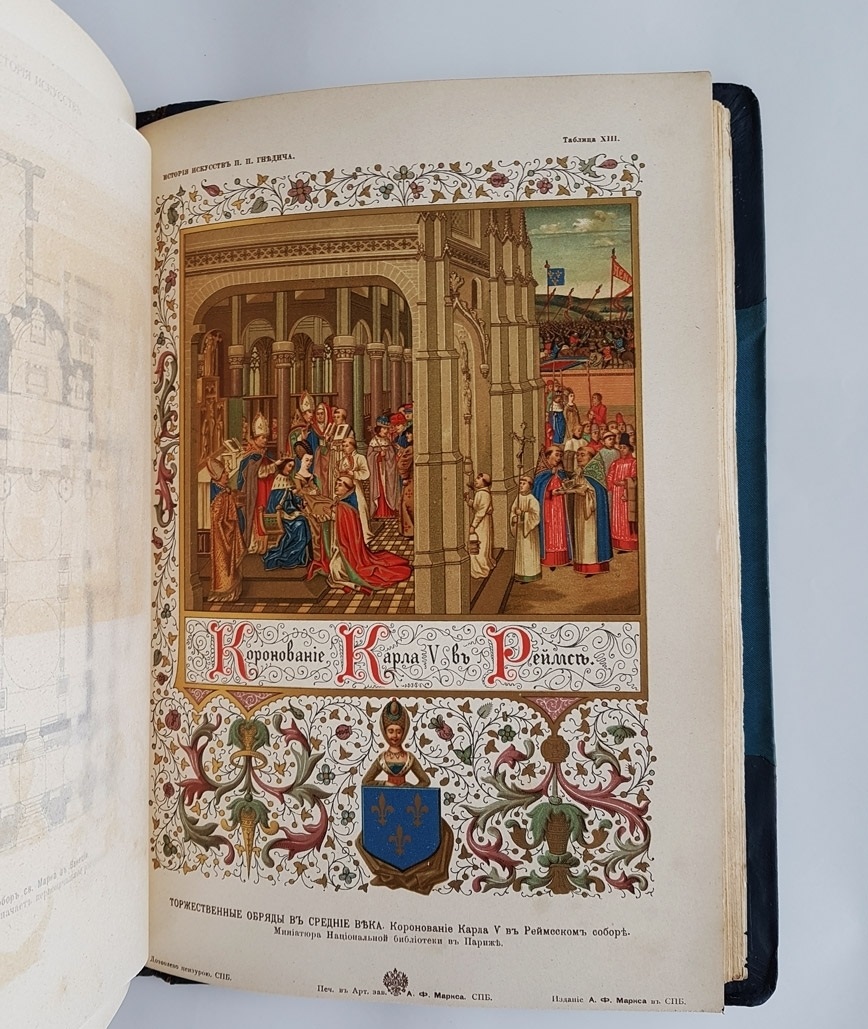 ИСТОРІЯ ИСКУССТВЪ П. П. ГНѢДИЧА.
Таблица XIII.
Коронованіе Карла V въ Реймсѣ.
ТОРЖЕСТВЕННЫЕ ОБРЯДЫ ВЪ СРЕДНІЕ ВѢКА. Коронованіе Карла V въ Реймсскомъ соборѣ.
Миніатюра Національной библіотеки въ Парижѣ.
Дозволено цензурою, СПБ.
Печ. въ Арт. зав. А. Ф. Маркса. СПБ.
Изданіе А. Ф. Маркса въ СПБ.